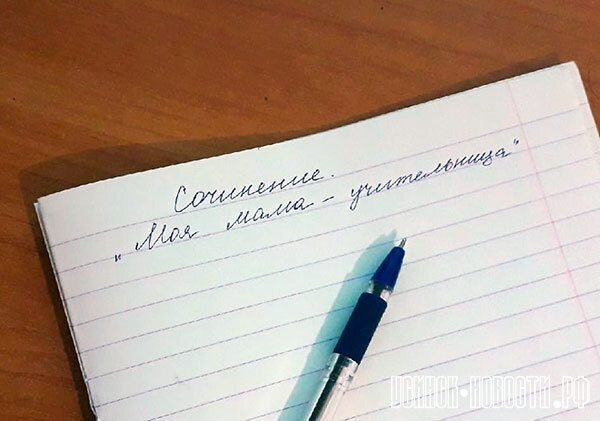 Сочинение.
„Моя мама – учительница"
УСИНСК-НОВОСТИ.РФ